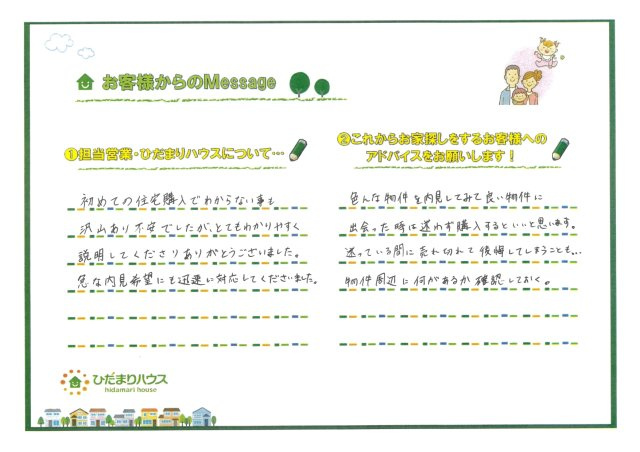 お客様からのMessage
①担当営業・ひだまりハウスについて…
初めての住宅購入でわからない事も
沢山あり不安でしたが、とてもわかりやすく
説明してくださりありがとうございました。
急な内見希望にも迅速に対応してくださいました。
②これからお家探しをするお客様への
アドバイスをお願いします！
色んな物件を内見してみて良い物件に
出会った時は迷わず購入するといいと思います。
迷っている間に売れ切れて後悔してしまうことも…
物件周辺に何があるか確認しておく。
ひだまりハウス
hidamari house